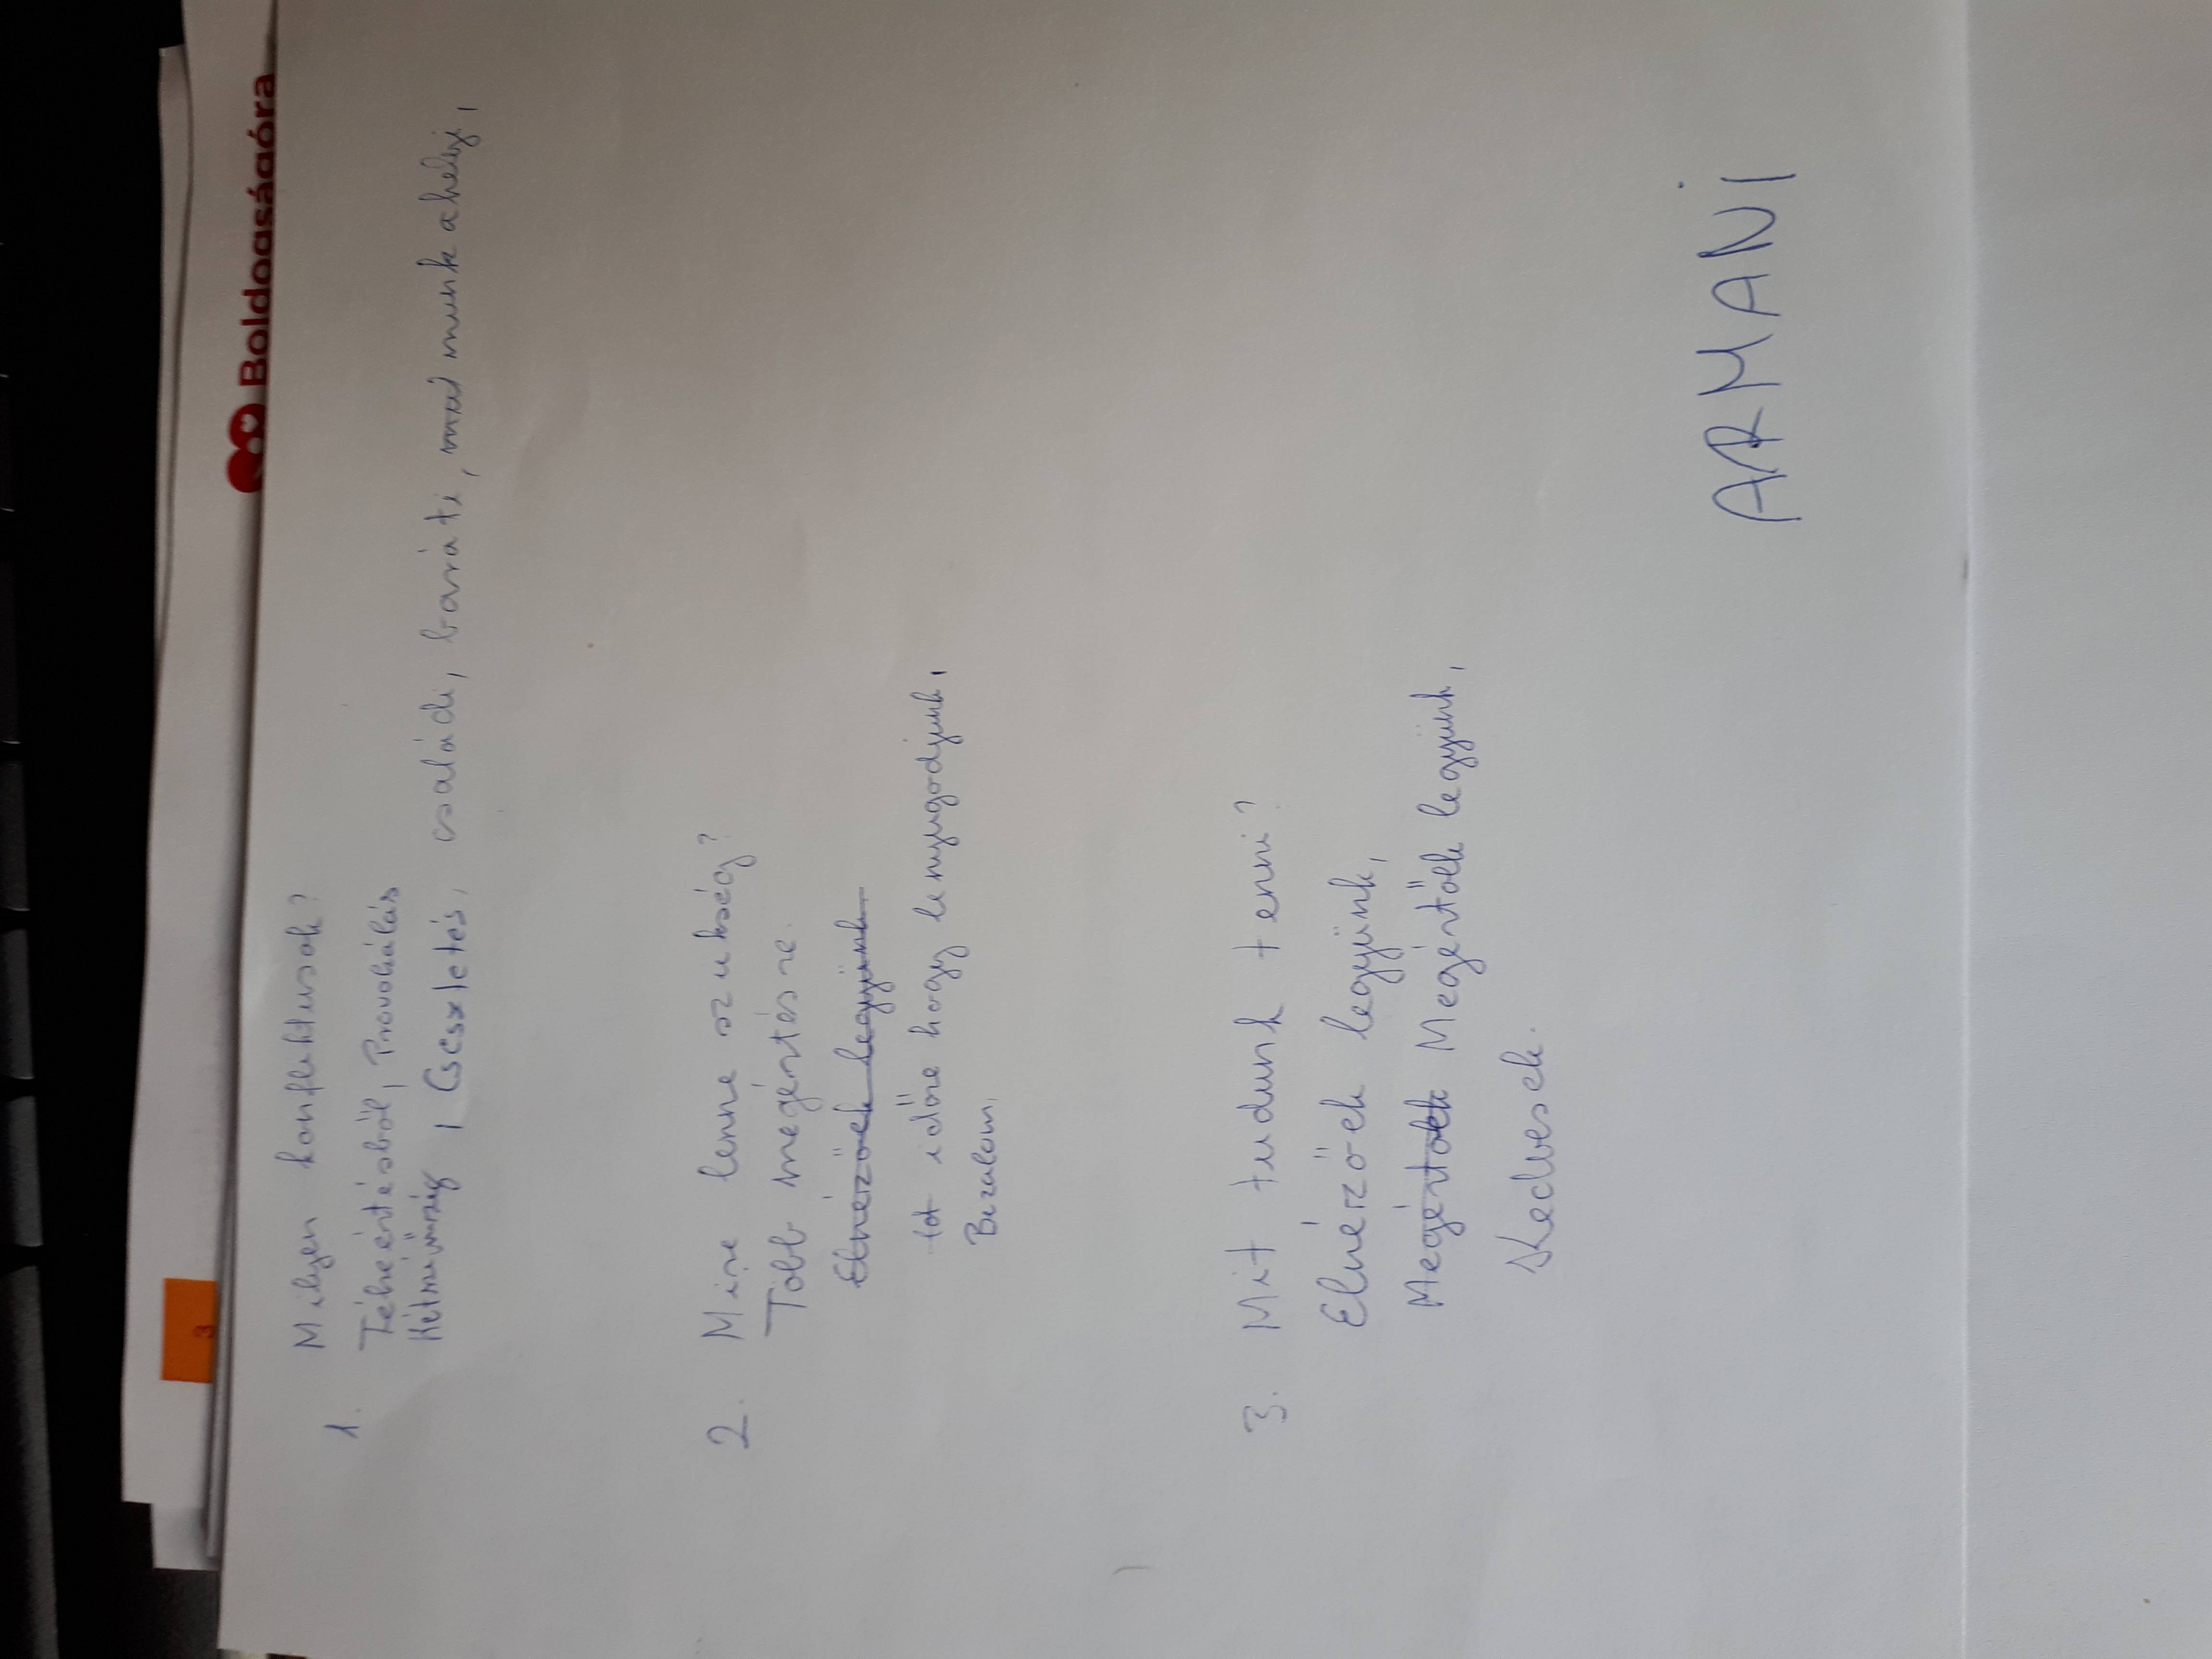 Boldogságóra
3
Milyen konfliktusok?
1.
Félreértésből, Provokálás
Kétszínűség, Csesztetés, családi, baráti, munkahelyi,
2. Mire lenne szukség?
Több megértésre.
Elnézőek legyünk
Idöre hogy lenyugodjunk,
Bizalom,
3. Mit tudunk tenni?
Elnézőek legyünk,
Megértőek Megértőek legyünk,
Kedvesek.
ARMANI